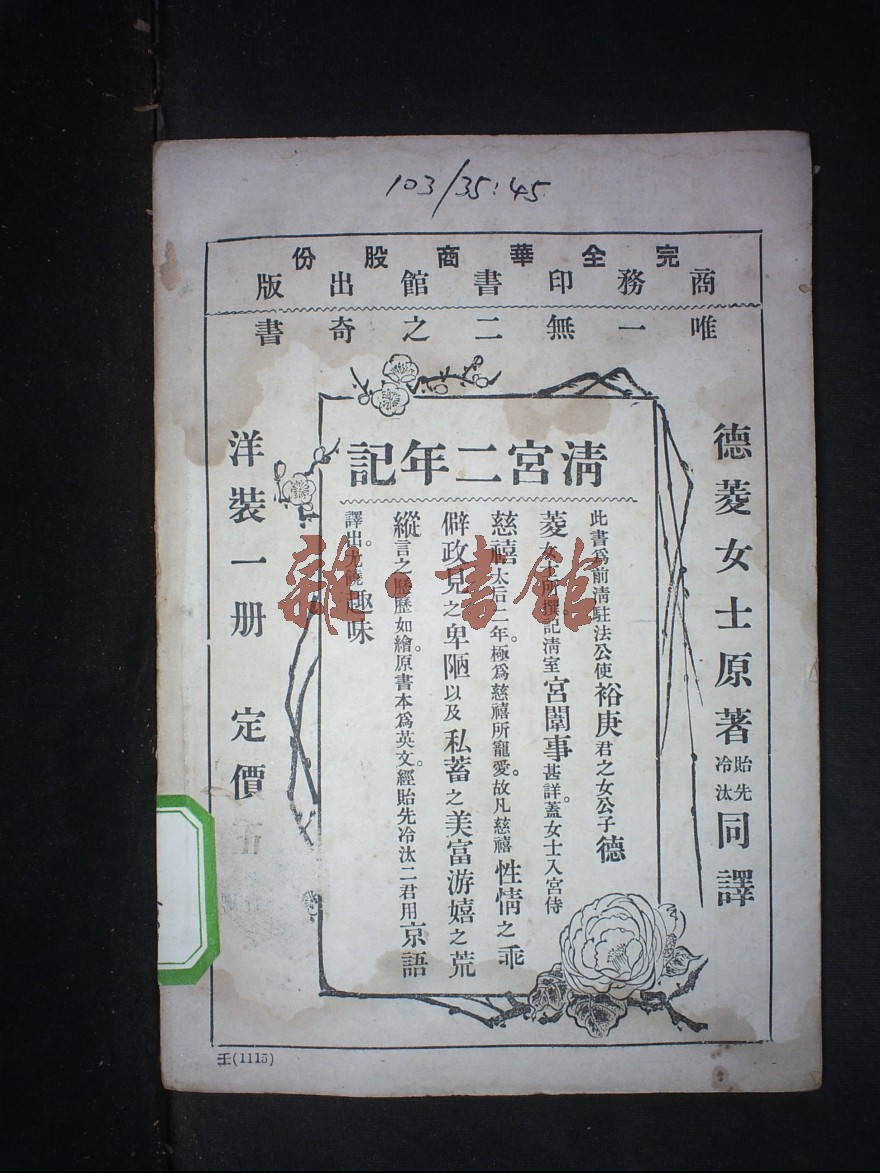 103/35:45
完全華商股份
商務印書館出版
唯一無二之奇書
德菱女士原著 貽先冷汰 同譯
清宮二年記
此書爲前清駐法公使裕庚君之女公子德
菱女士所撰記清室宮闈事甚詳。蓋女士入宮侍
慈禧太后二年。極爲慈禧所寵愛。故凡慈禧性情之乖
僻政見之卑陋以及私蓄之美富游嬉之荒
縱言之歷歷如繪。原書本爲英文。經貽先冷汰二君用京語
譯出。尤饒趣味
洋裝一册 定價
雜·書館
王(1115)